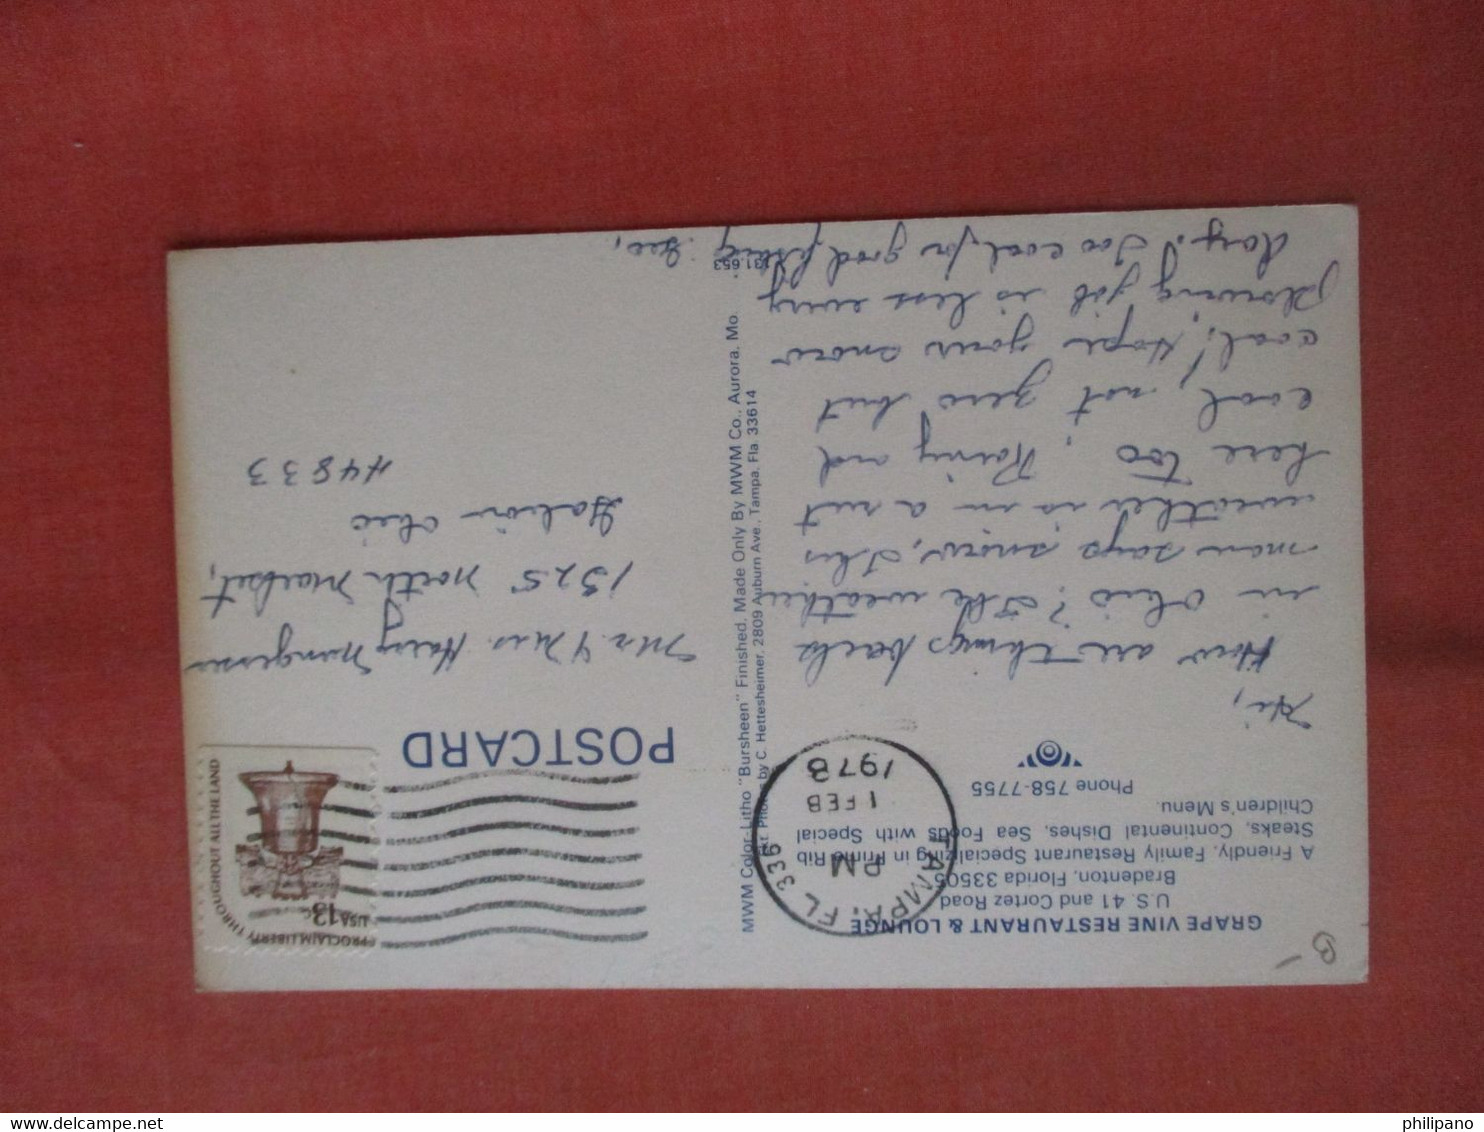 GRAPE VINE RESTAURANT & LOUNGE
U.S. 41 and Cortez Road
Bradenton, Florida 33505
A Friendly, Family Restaurant Specializing in Prime Rib
Steaks, Continental Dishes, Sea Foods with Special
Children's Menu.
Phone 758-7755
Hi,
How are things back
in Ohio? The weather
man says snow, this
weather is in a rut
here too, Rainy and
cool, not zero but
cool! Hope your snow
plowing job is less every
day! Too cool for good fishing
Geo,
TAMPA, FL 336
PM
1 FEB
1978
MWM Color-Litho "Bursheen" Finished. Made Only By MWM Co., Aurora, Mo.
Ekt. Photo by C. Hettesheimer, 2809 Auburn Ave., Tampa, Fla 33614
J31,653
POSTCARD
PROCLAIM LIBERTY THROUGHOUT ALL THE LAND
USA 13c
Mr & Mrs Harry
1325 North Market,
Galion Ohio
44833
B-
philipano